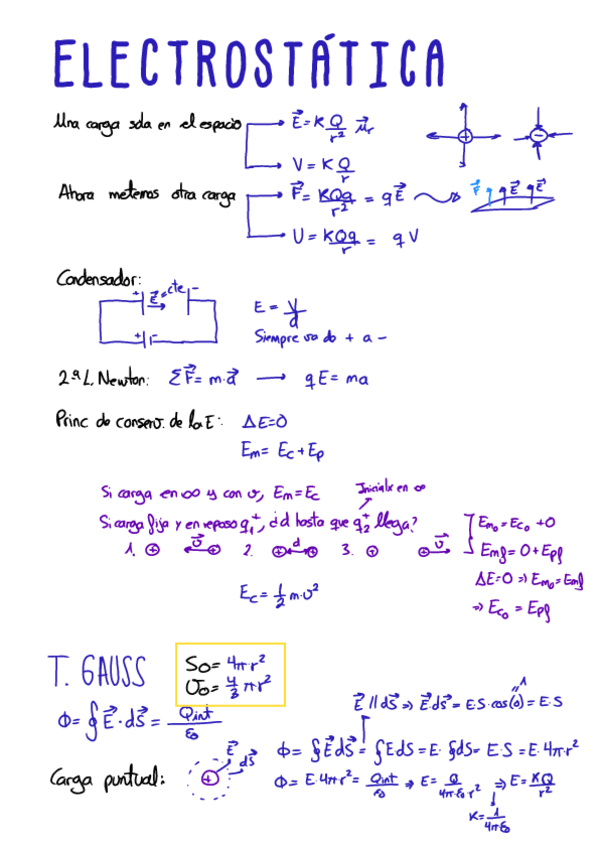 ELECTROSTÁTICA
Una carga sola en el espacio
E⃗ = K Q/r² μ⃗r
V = K Q/r
Ahora metemos otra carga
F⃗ = KQq/r² = qE⃗
F⃗ q qE⃗ qE⃗
U = KQq/r = qV
Condensador:
+ E⃗=cte -
+ -
E = V/d
Siempre va do + a -
2ª L. Newton: ΣF⃗ = m·a⃗ → qE = ma
Princ de conserv. de la E: ΔE=0
Em = Ec + Ep
Si carga en ∞ y con v, Em = Ec
Inicialx en ∞
Si carga fija y en reposo q₁⁺, ¿d hasta que q₂⁺ llega?
1. ⊕ v⃗ 2. ⊕ d 3. ⊕ v⃗
Em₀ = Ec₀ + 0
Emf = 0 + Epf
ΔE=0 ⇒ Em₀ = Emf
⇒ Ec₀ = Epf
Ec = 1/2 m·v²
T. GAUSS
So = 4π·r²
Vo = 4/3 π·r²
Φ = ∮ E⃗·dS⃗ = Qint/ε₀
E⃗ // dS⃗ ⇒ E⃗dS⃗ = E·S·cos(0) = E·S
1
Φ = ∮E⃗dS⃗ = ∫EdS = E·∮dS = E·S = E·4π·r²
Carga puntual:
⊕ E⃗ dS⃗
Φ = E·4π·r² = Qint/ε₀ ⇒ E = Q/4π·ε₀·r² ⇒ E = KQ/r²
K = 1/4πε₀